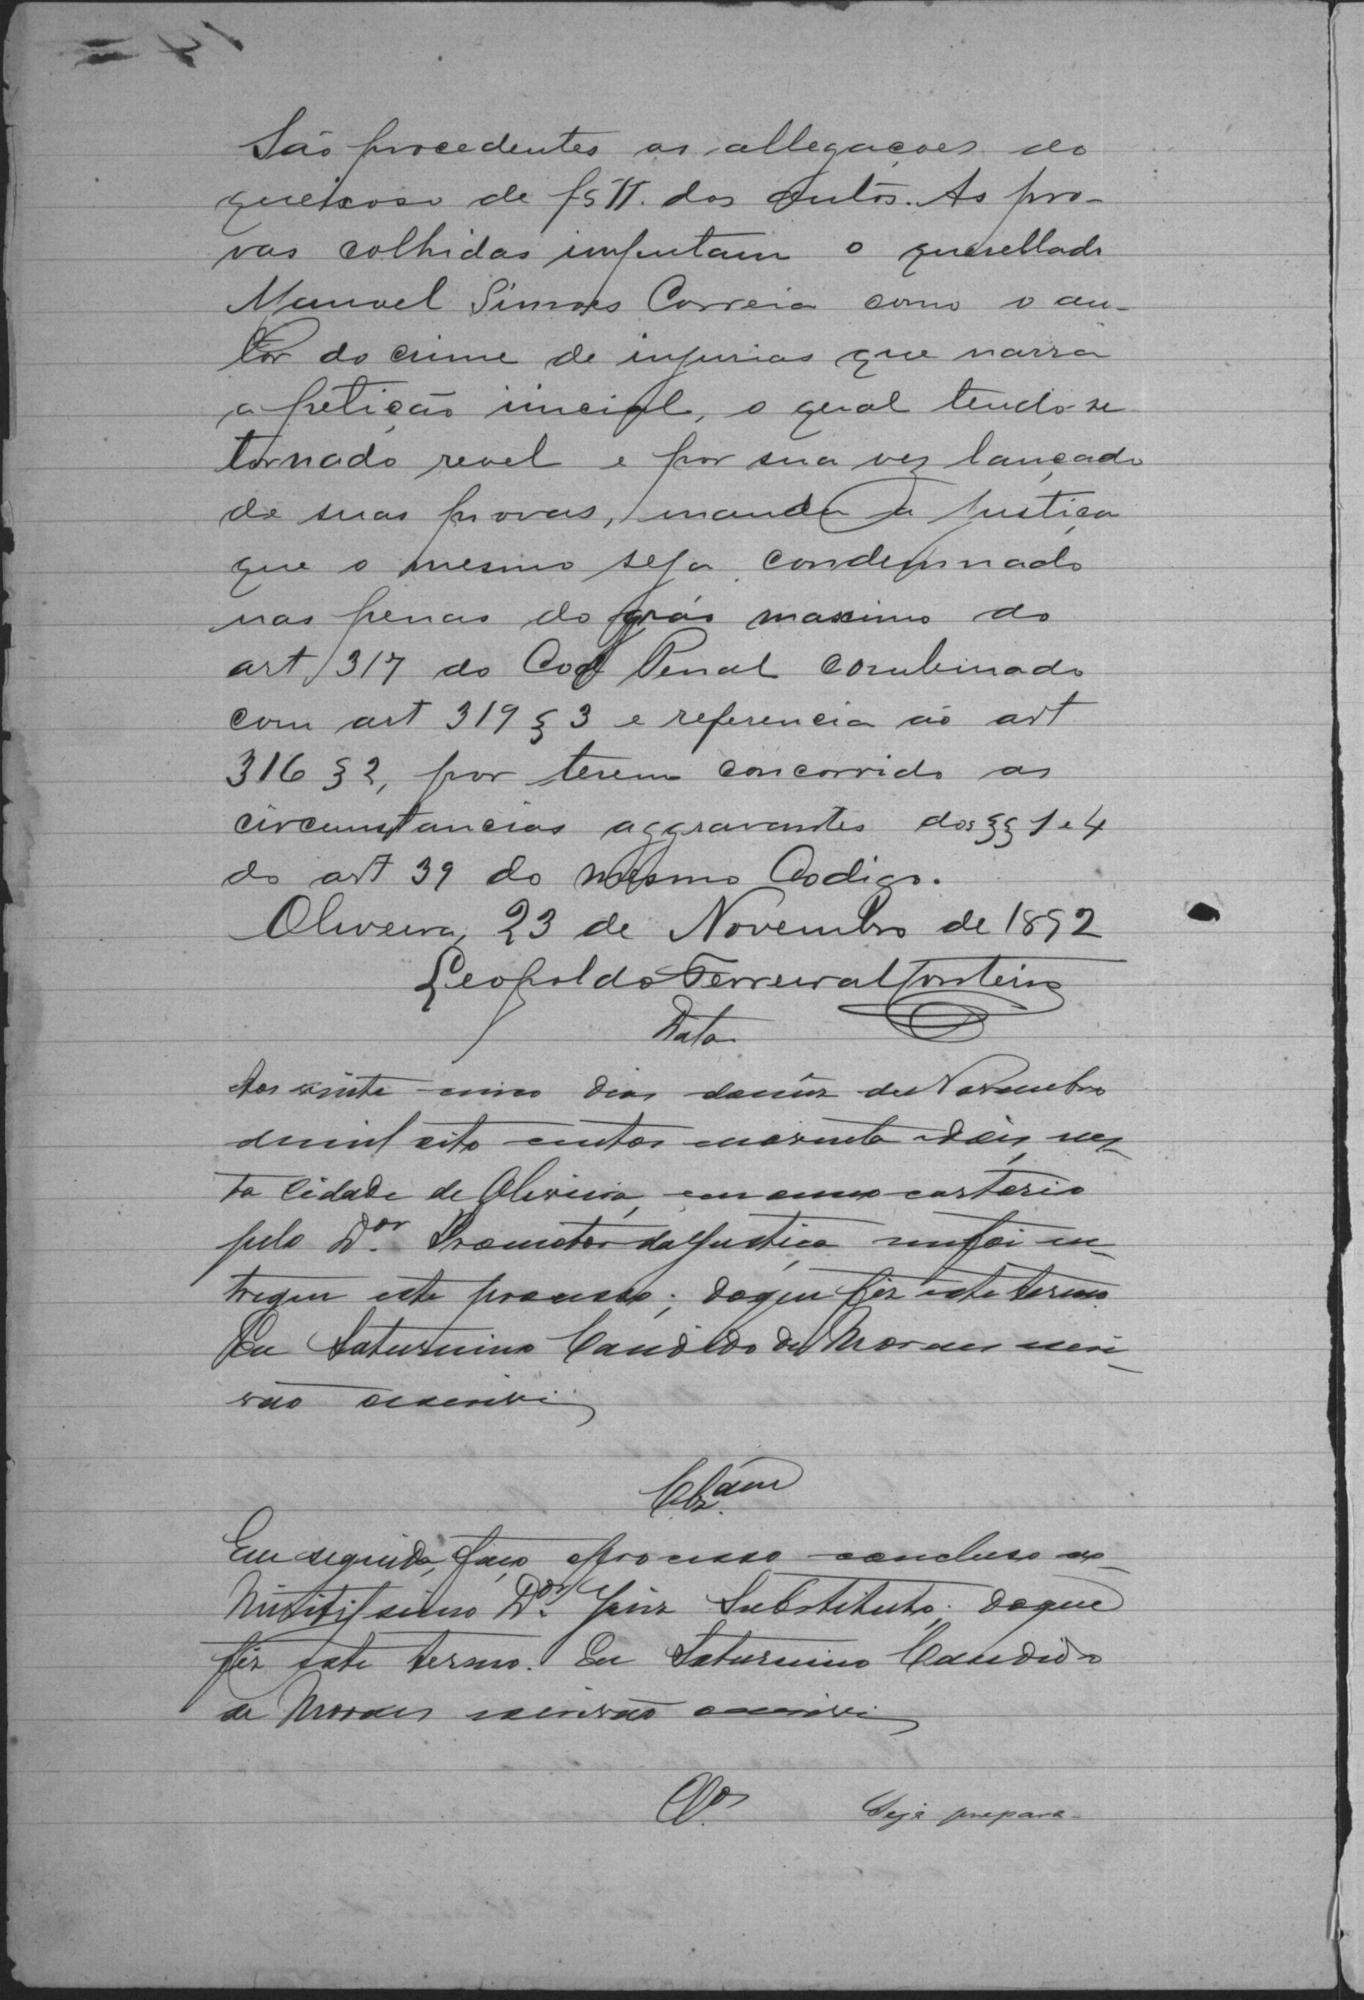 São procedentes as allegações do
queixoso de fs II. dos autos. As pro-
vas colhidas imputam o querellado
Manoel Simões Correia como o au-
tor do crime de injurias que narra
a petição inicial, o qual tendo-se
tornado revel e por sua vez lançado
de suas provas, manda a Justiça
que o mesmo seja condemnado
nas penas do gráo maximo do
art 317 do Cod Penal combinado
com art 319 § 3 e referencia ao art
316 § 2, por terem concorrido as
circumstancias aggravantes dos §§ 1 e 4
do art 39 do mesmo Codigo.
Oliveira, 23 de Novembro de 1892
Leopoldo Ferreira Monteiro
Data
Aos vinte cinco dias do mez de Novembro
de mil oito centos noventa e dois, nes-
ta Cidade de Oliveira, em meu cartorio
pelo Dor. Promotor da Justiça me foi en-
tregue este processo; do que fiz este termo.
Eu Saturnino Candido de Moraes escri-
vão escrevi
Clzam
Em seguida, faço o processo concluso ao
Meritissimo Dor. Juiz Substituto; do que
fiz este termo. Eu Saturnino Candido
de Moraes escrivão escrevi
Clos. Seja prepara-